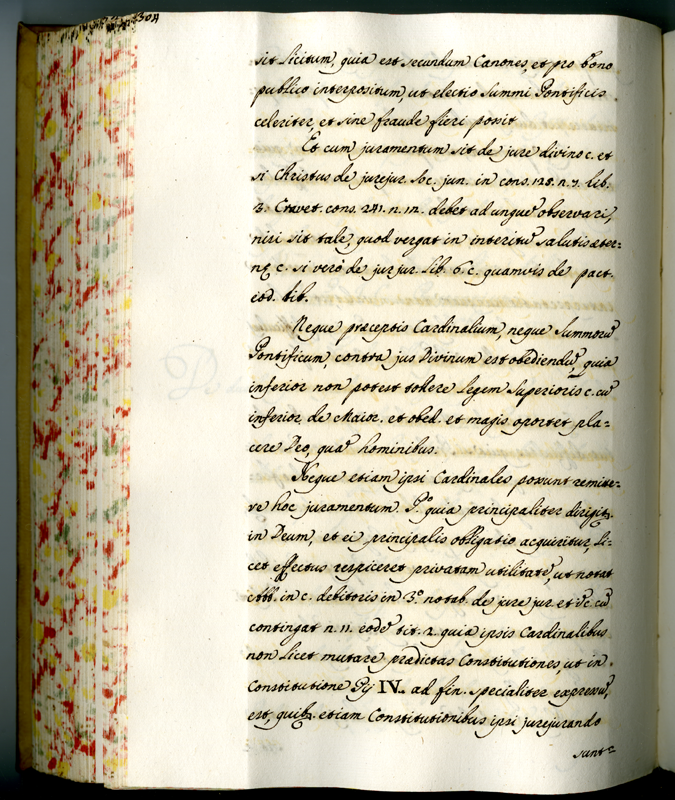 sit licitum, quia est secundum Canones, et pro bono
publico interpositum, ut electio Summi Pontificis
celeriter, et sine fraude fieri possit
Et cum juramentum sit de jure divino c. et
si Christus de jurejur. Soc. jun. in cons. 128. n. 7. lib.
3. Cravet. cons. 241. n. 12. debet ad ungue᷃ observari,
nisi sit tale, quod vergat in interitu᷃ salutis æter=
nę c. si verò de jur jur. lib. 6. c. quamvis de pact.
eod. lib.
Neque præceptis Cardinalium, neque Summoru᷃
Pontificum, contra jus Divinum est obediendu᷃, quia
inferior non potest tollere legem Superioris c. cu᷃
inferior, de Maior. et obed. et magis oportet pla=
cere Deo, qua᷃ hominibus.
Neque etiam ipsi Cardinales possunt remitte=
re hoc juramentum. Pº quia principaliter dirigit.
in Deum, et ei principalis obligatio acquiritur, li=
cet effectus respiceret privatam utilitate᷃, ut notat
Abb. in c. debitoris in 3º notab. de jure jur. et c. cu᷃
contingat n. 11. eode᷃ tit. 2. quia ipsis Cardinalibus
non licet mutare prædictas Constitutiones, ut in
Constitutione Pij IV. ad fin. specialiter expressu᷃,
est, quib. etiam Constitutionibus ipsi jurejurando
sunt